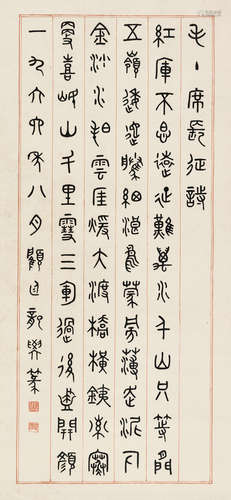 毛主席長征詩
紅軍不怕遠征難萬水千山只等閒
五嶺逶迤騰細浪烏蒙磅礴走泥丸
金沙水拍雲崖暖大渡橋橫鐵索寒
更喜岷山千里雪三軍過後盡開顏
一九六年八月顧篆